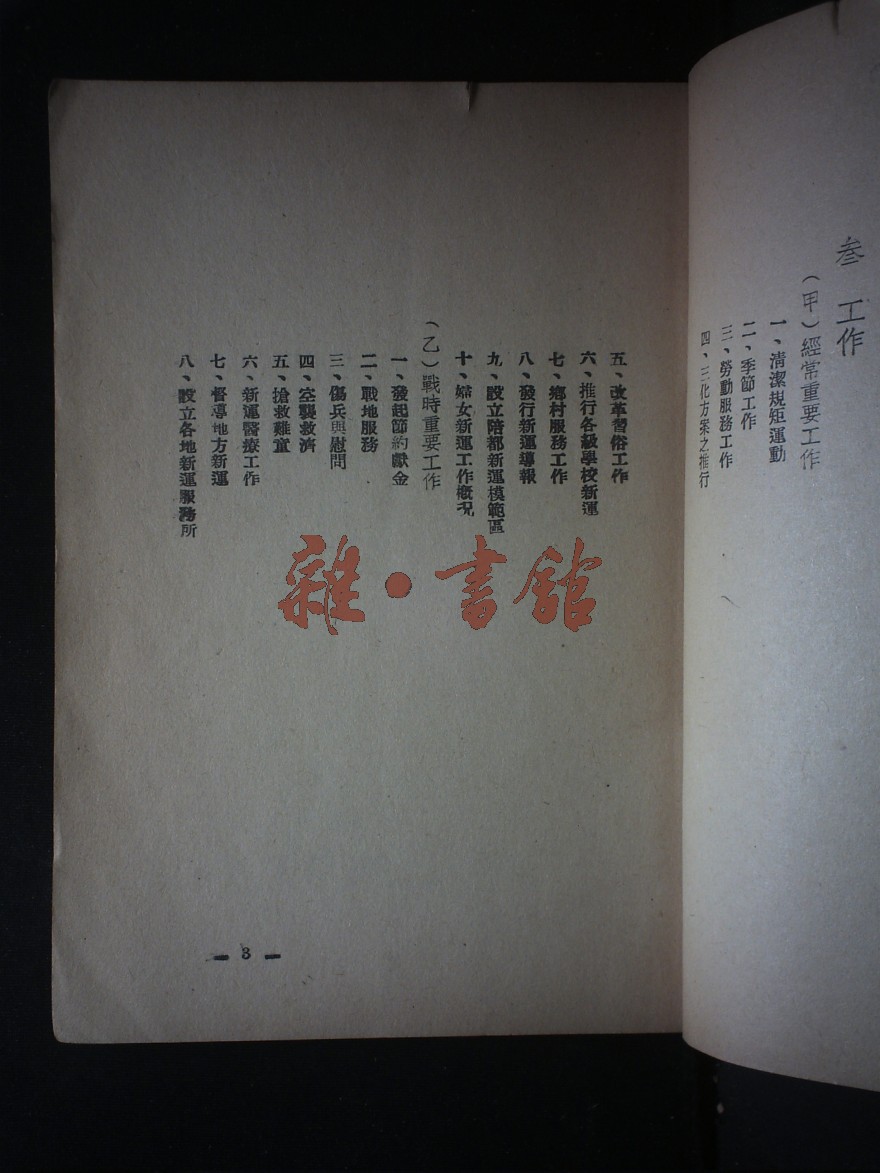 叁 工作
（甲）經常重要工作
一、清潔規矩運動
二、季節工作
三、勞動服務工作
四、三化方案之推行
五、改革習俗工作
六、推行各級學校新運
七、鄉村服務工作
八、發行新運導報
九、設立陪都新運模範區
十、婦女新運工作概況
（乙）戰時重要工作
一、發起節約獻金
二、戰地服務
三、傷兵與慰問
四、空襲救濟
五、搶救難童
六、新運醫療工作
七、督導地方新運
八、設立各地新運服務所
3
雜·書館